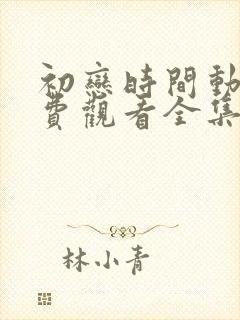 初戀時間動
費觀看全集
林小青